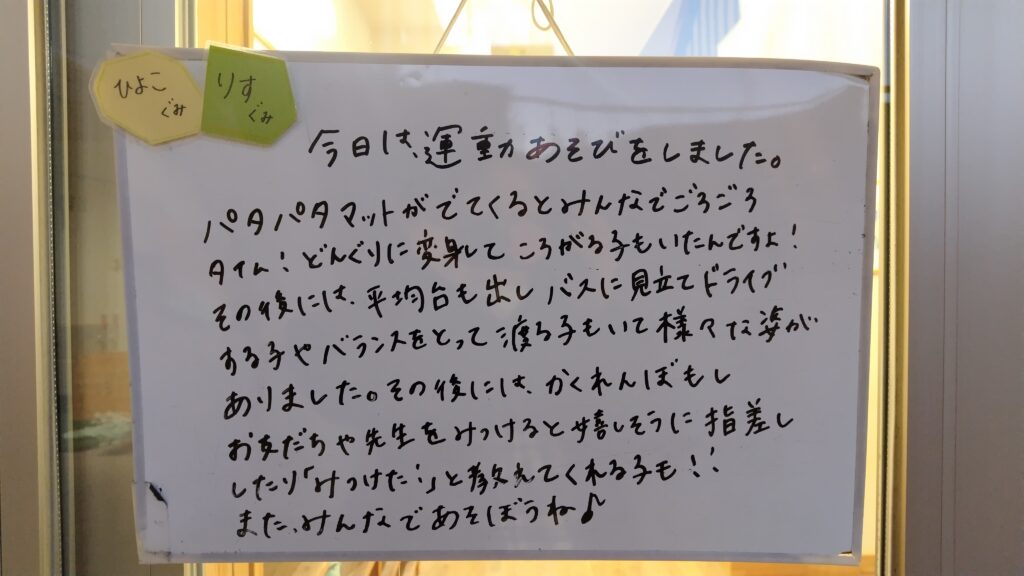 ひよこ
ぐみ
りす
ぐみ
今日は、運動あそびをしました。
パタパタマットがでてくるとみんなでごろごろ
タイム！どんぐりに変身して ころがる子もいたんですよ！
その後には、平均台も出し バスに見立てドライブ
する子やバランスをとって渡る子もいて様々な姿が
ありました。その後には、かくれんぼもし
お友だちや先生をみつけると嬉しそうに指差し
したり「みつけた！」と教えてくれる子も！！
また、みんなであそぼうね♪